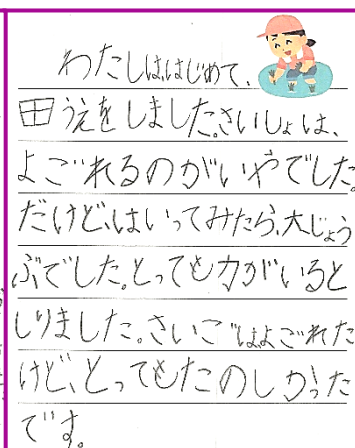 わたしは、はじめて、
田うえをしました。さいしょは、
よごれるのがいやでした。
だけど、はいってみたら、大じょう
ぶでした。とっても力がいると
しりました。さいごはよごれた
けど、とってもたのしかった
です。